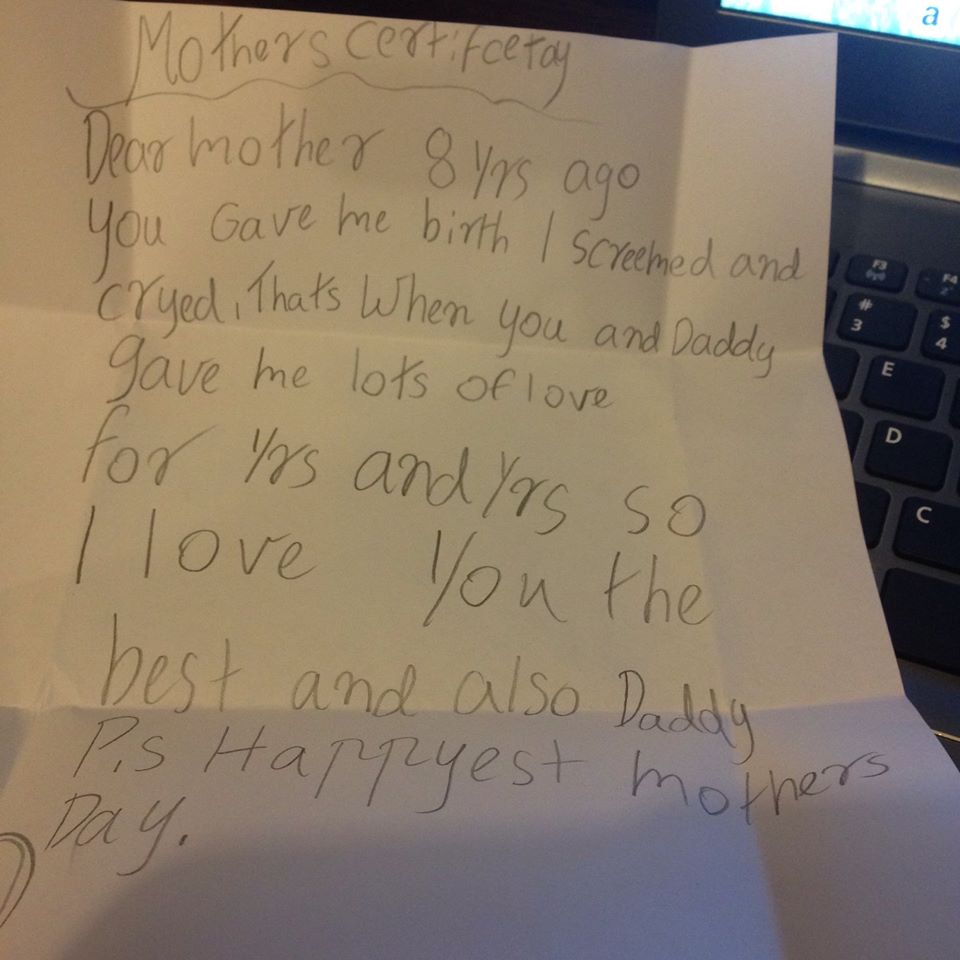 Mothers certifcetay
Dear mother 8 yrs ago
you Gave me birth I screemed and
cryed, Thats When you and Daddy
gave me lots of love
for yrs and yrs so
I love you the
best and also Daddy
P.s Happyest mothers
Day.
a
F3
F4
#
3
$
4
E
D
C